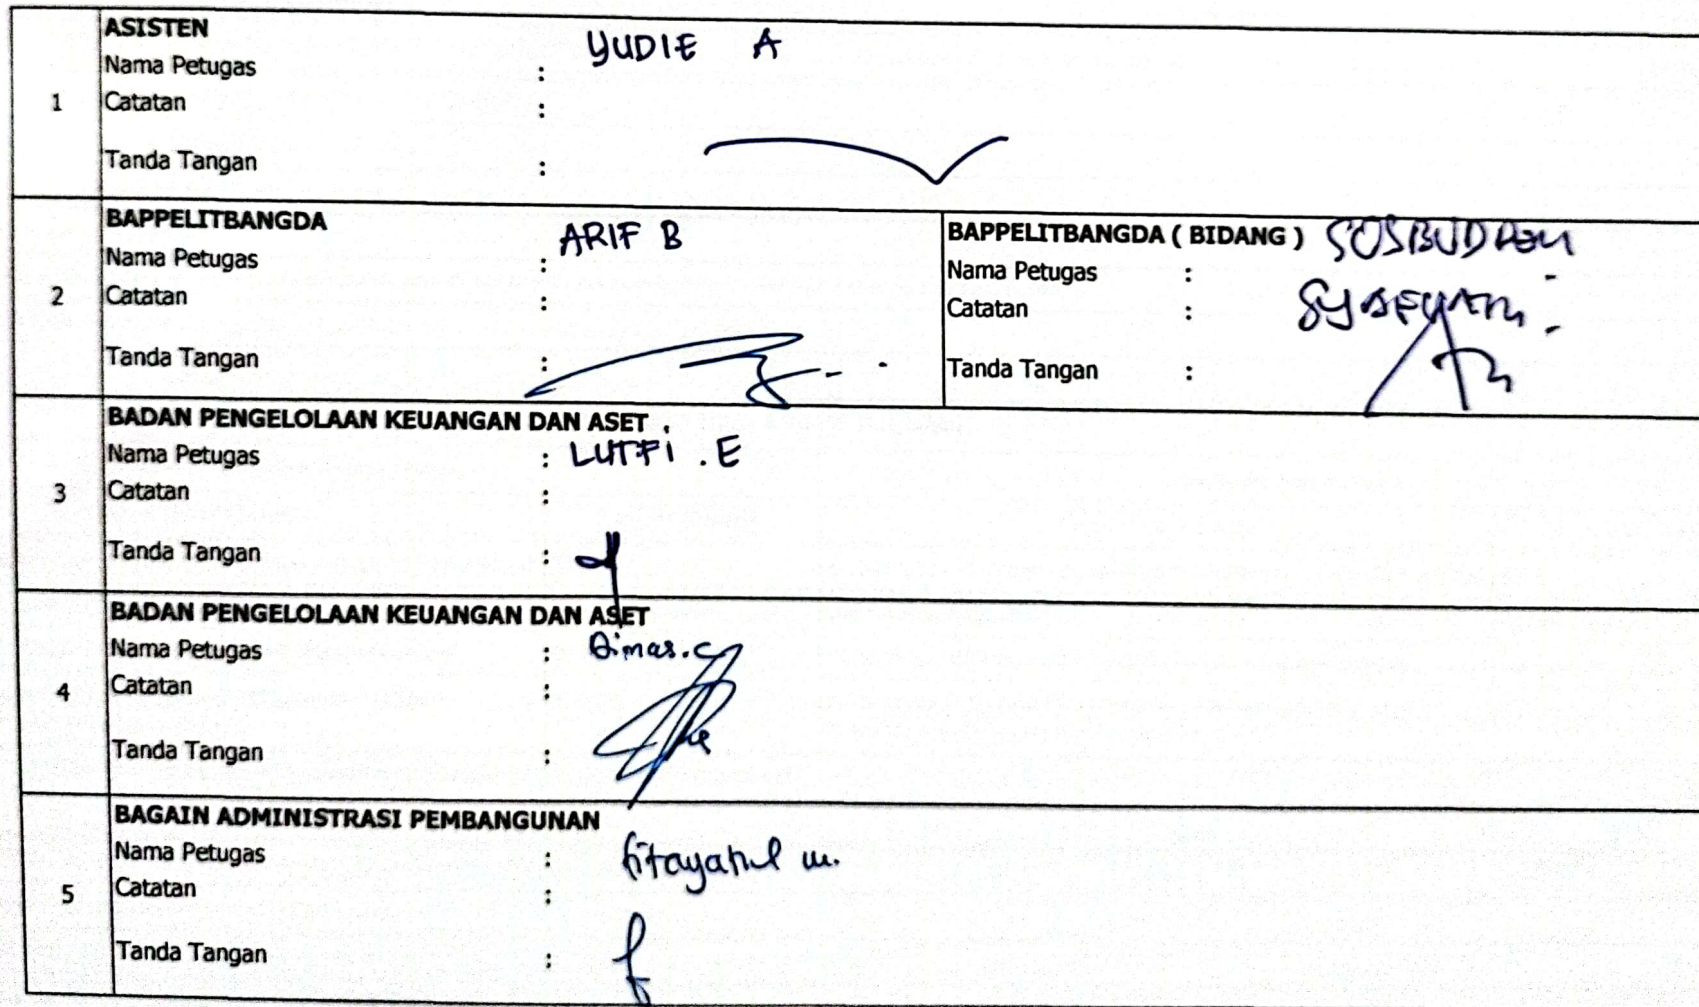 ASISTEN
Nama Petugas : YUDIE A
1 Catatan :
Tanda Tangan :
BAPPELITBANGDA
Nama Petugas : ARIF B
2 Catatan :
Tanda Tangan :
BAPPELITBANGDA ( BIDANG )
Nama Petugas :
Catatan :
Tanda Tangan :
BADAN PENGELOLAAN KEUANGAN DAN ASET
Nama Petugas : LUTFI . E
3 Catatan :
Tanda Tangan :
BADAN PENGELOLAAN KEUANGAN DAN ASET
Nama Petugas : Dimas.C
4 Catatan :
Tanda Tangan :
BAGAIN ADMINISTRASI PEMBANGUNAN
Nama Petugas :
5 Catatan :
Tanda Tangan :